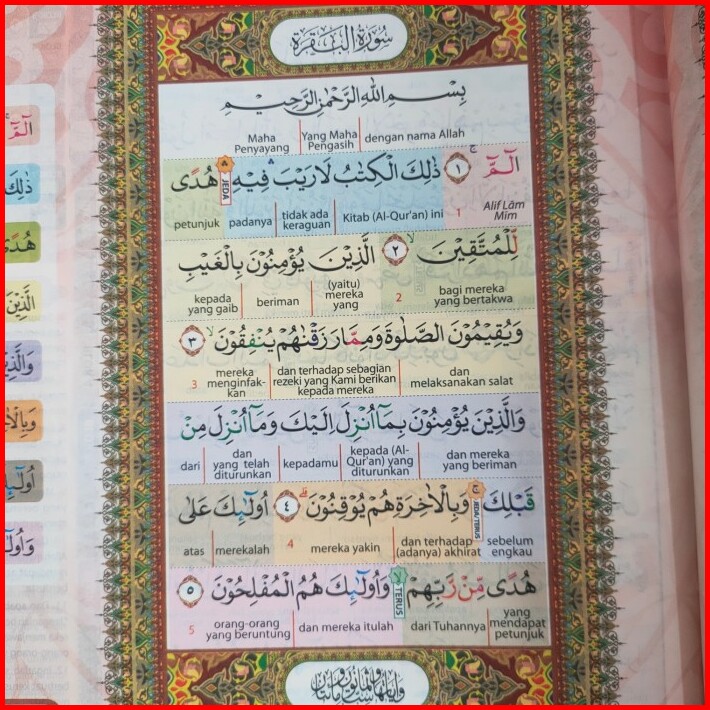 سُورَةُ الْبَقَرَةِ
بِسْمِ اللّٰهِ الرَّحْمٰنِ الرَّحِيْمِ
dengan nama Allah | Yang Maha Pengasih | Maha Penyayang
الۤمّۤ ۚ ١ ذٰلِكَ الْكِتٰبُ لَا رَيْبَ ۛ فِيْهِ ۛ JEDA هُدًى
Alif Lām Mim 1 | Kitab (Al-Qur'an) ini | tidak ada keraguan | padanya | petunjuk
لِّلْمُتَّقِيْنَ ۙ ٢ الَّذِيْنَ يُؤْمِنُوْنَ بِالْغَيْبِ
bagi mereka yang bertakwa 2 | (yaitu) mereka yang | beriman | kepada yang gaib
وَيُقِيْمُوْنَ الصَّلٰوةَ وَمِمَّا رَزَقْنٰهُمْ يُنْفِقُوْنَ ۙ ٣
dan melaksanakan salat | dan terhadap sebagian rezeki yang Kami berikan kepada mereka | mereka menginfak-kan 3
وَالَّذِيْنَ يُؤْمِنُوْنَ بِمَآ اُنْزِلَ اِلَيْكَ وَمَآ اُنْزِلَ مِنْ
dan mereka yang beriman | kepada (Al-Qur'an) yang diturunkan | kepadamu | dan yang telah diturunkan | dari
قَبْلِكَ ۚ JEDA/TERUS وَبِالْاٰخِرَةِ هُمْ يُوْقِنُوْنَ ۗ ٤ اُولٰۤىِٕكَ عَلٰى
sebelum engkau | dan terhadap (adanya) akhirat | mereka yakin 4 | merekalah | atas
هُدًى مِّنْ رَّبِّهِمْ ۙ TERUS وَاُولٰۤىِٕكَ هُمُ الْمُفْلِحُوْنَ ٥
yang mendapat petunjuk | dari Tuhannya | dan mereka itulah | orang-orang yang beruntung 5
الۤمّۤ
ذٰلِكَ
هُدًى
الَّذِيْنَ
اُولٰۤىِٕ